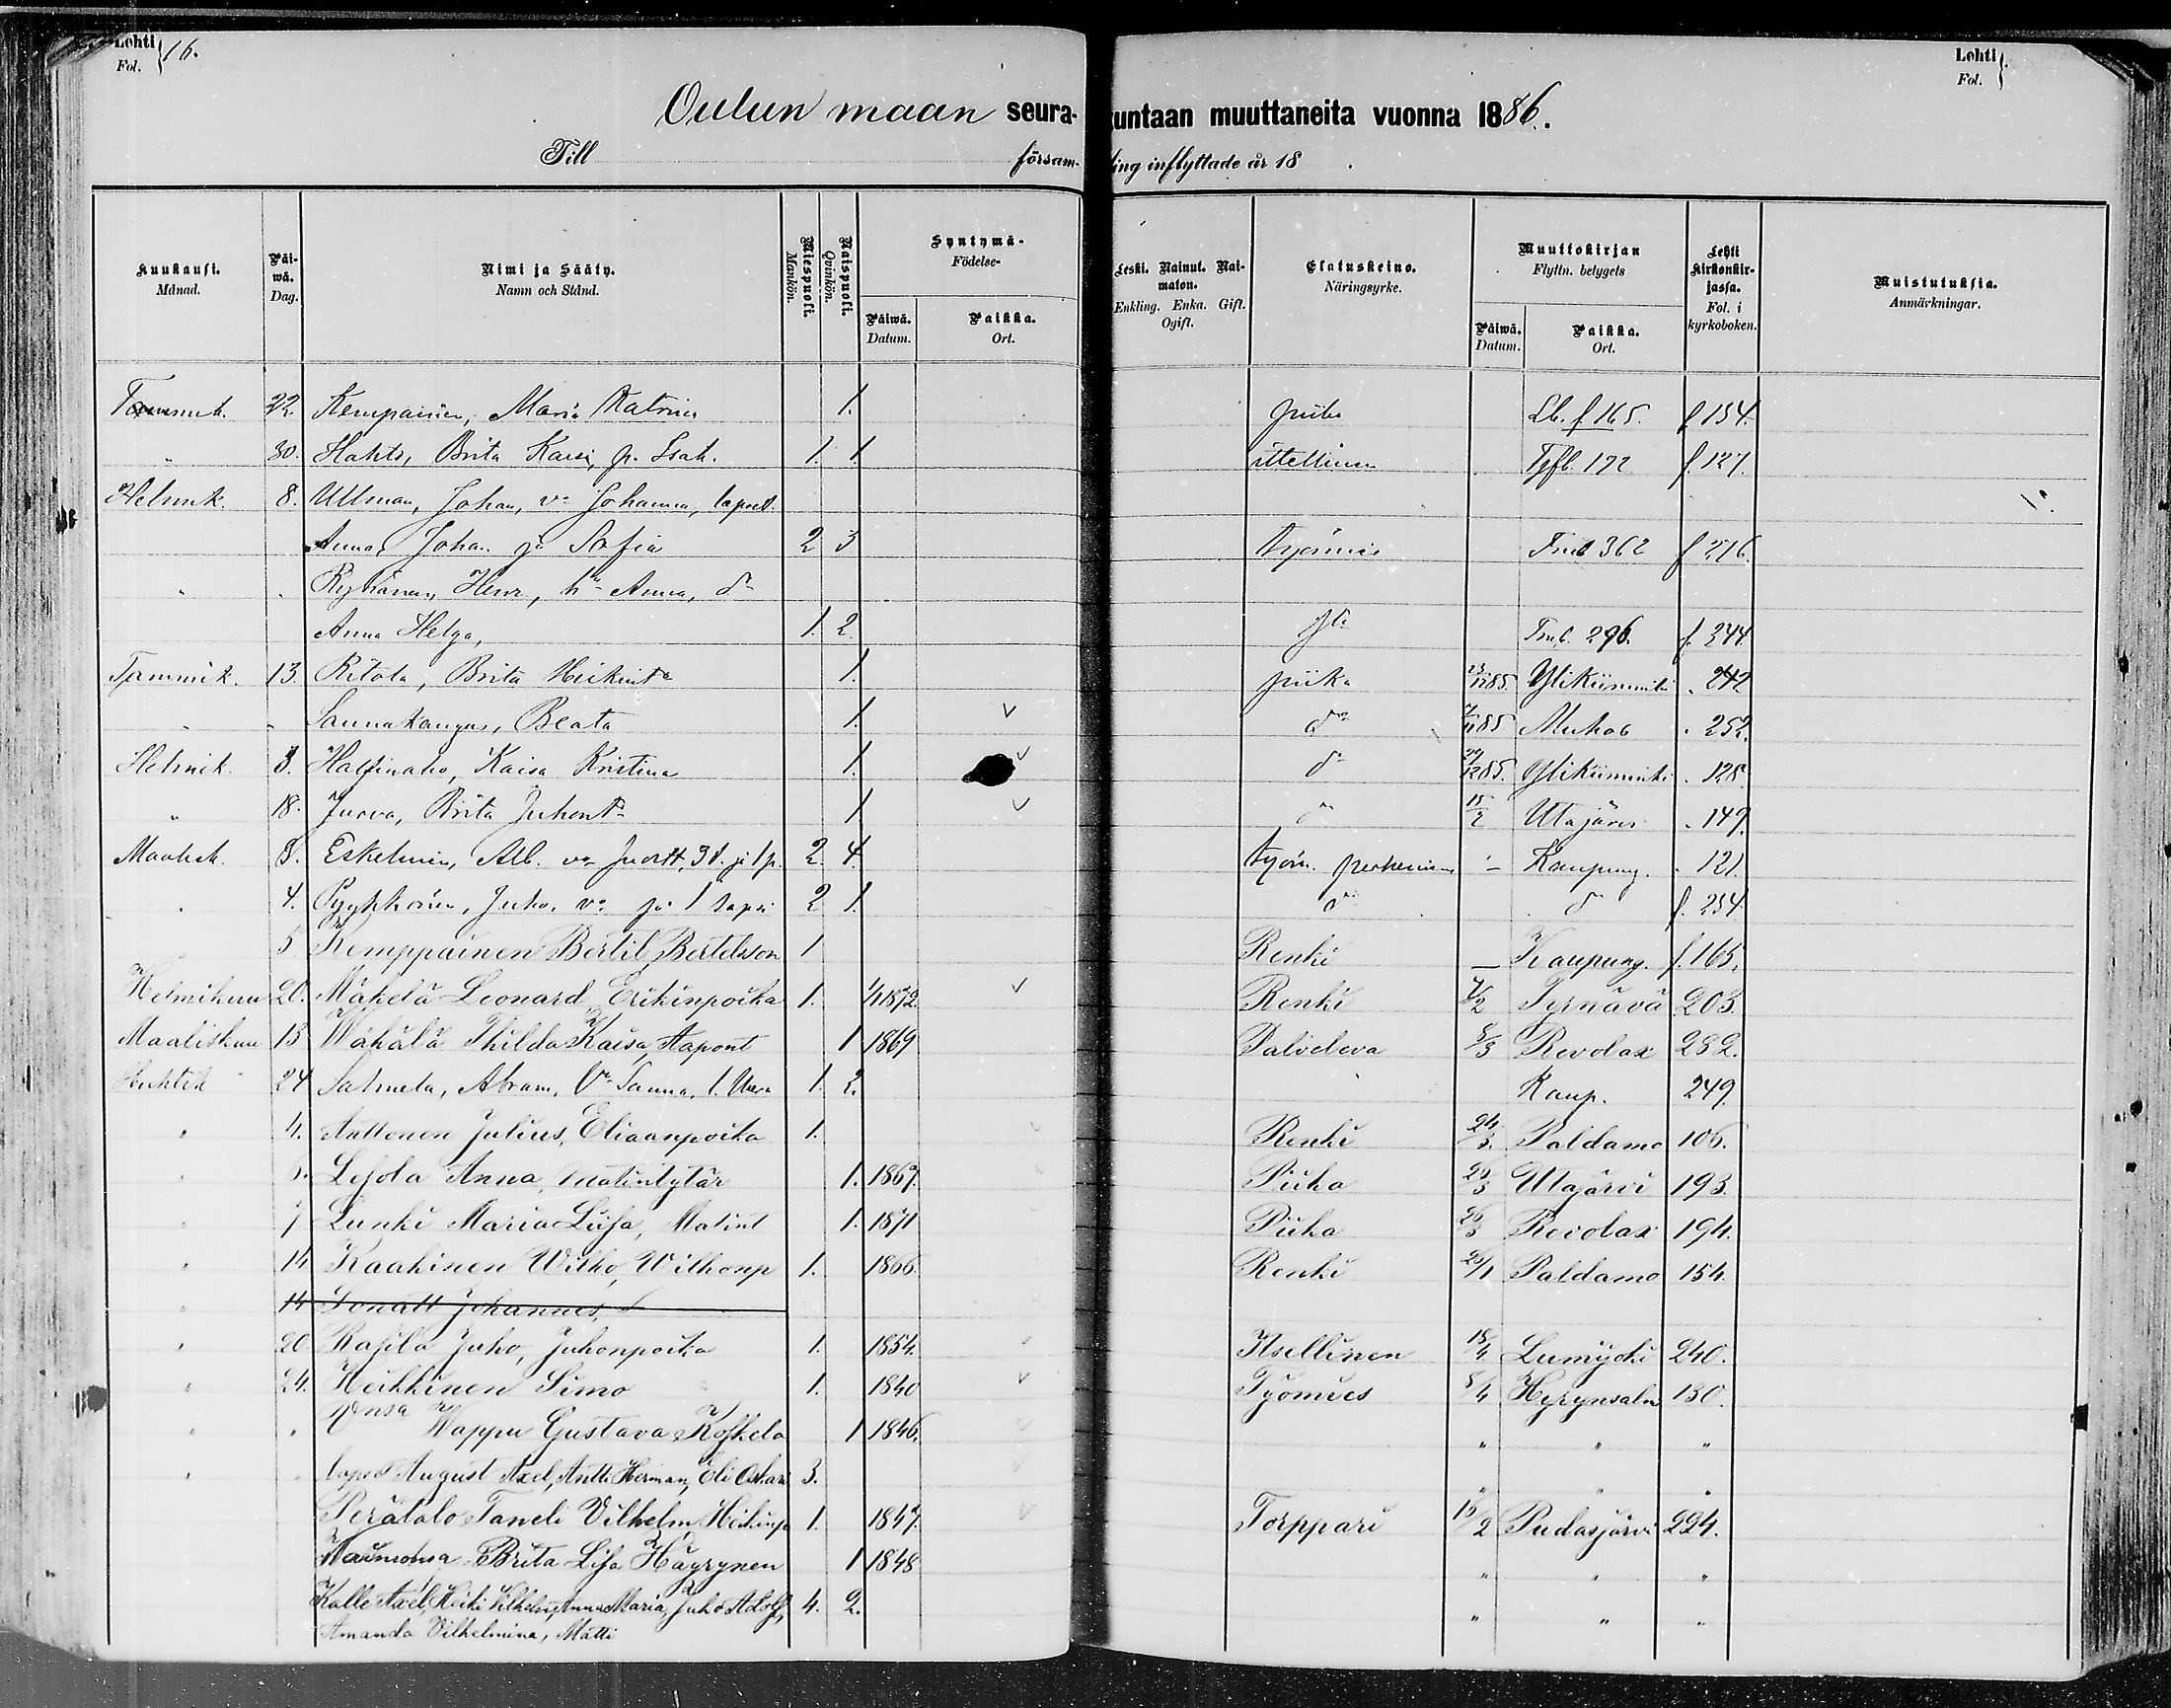 Lehti Fol. 16. Lehti Fol.
Oulun maan seurakuntaan muuttaneita vuonna 1886.
Till församling inflyttade år 18 .
Kuukausi. Månad. Päiwä. Dag. Nimi ja Sääty. Namn och Stånd. Miespuoli. Mankön. Naispuoli. Qvinkön. Syntymä- Födelse- Päiwä. Datum. Paikka. Ort. Leski. Nainut. Naimaton. Enkling. Enka. Gift. Ogift. Elatuskeino. Näringsyrke. Muuttokirjan Flyttn. betygets Päiwä. Datum. Paikka. Ort. Lehti kirkonkirjassa. Fol. i kyrkoboken. Muistutuksia. Anmärkningar.
Tammik. 22. Kempainen, Maria Katrina 1. piika Lb. f. 165. f 154.
" 30. Hahto, Brita Kaisi, p. Isak. 1. 1. ittellinen 172 f. 127.
Helmik. 8. Ullman, Johan, vo Johanna, lapset.
Anna, Johan ja Sofia 2 3 työmies 362 f 276.
" . Ryhänen, Henr, ho Anna, do
Anna Helga, 1. 2. 296. f. 344
Tammik. 13. Ritola, Brita Heikint. 1. piika 23/12 85. Ylikiiminki . 242
" " Saunakangas, Beata 1. v do 7/11 85 Muhos . 252.
Helmik. 3. Halfinaho, Kaisa Kristina 1. v do 29/12 85. Ylikiiminki . 128.
" 18. Jurva, Brita Juhont. 1 v do 15/2 Utajärvi . 149.
Maalisk. 8. Eskelinen, Alb. vo 3 t. ja 1 p. 2. 4. työm. perheineen - Kaupung. . 121.
" 4. Pyykkönen, Juho, vo ja 1 lapsi 2 1. do do f. 254.
5. Kemppainen Bertil, Bertelsson 1 Renki — Kaupung. f. 165.
Helmikuu 20. Mäkelä Leonard, Erikinpoika 1. 1/1 1872. v Renki 7/2 Temävä 203.
Maaliskuu 13 Wähälä Thilda Kaisa, Aapont 1 1869 Palveleva 8/3 Revolax 282.
Huhtik 24 Salmela, Abram, Vo Sanna, 1. 1. 2. Kaup. 249.
" 4. Anttonen Julius, Eliaanpoika 1. Renki 24/3. Paldamo 106.
" 6. Lejola Anna, Matintytär 1. 1867. Piika 24/3 Utajärvi 193.
" 7 Lunki Maria Liisa, Matint 1. 1871 Piika 26/3 Revolax 194.
" 14 Kaakinen Wilho, Wilhonp 1. 1866. Renki 26/1 Paldamo 154.
" 14 Lonatt Johannes,
" 20 Rasila Juho, Juhonpoika 1. 1854. Itsellinen 18/4 Lumijoki 240.
" 24. Heikkinen Simo 1. 1840 v Työmies 8/4 Hyrynsalm 130.
" " Vmsa Wappu Gustava Koskela 1 1846. v " " "
" . lapset August Axel, Antti Herman, Eli Oskari 3. v " " "
Perätalo Taneli Vilhelm Heikinp 1. 1847. v Torppari 16/2 Pudasjärvi 224.
Waimonsa Brita Lisa Häyrynen 1 1848 " " "
Kalle Axel, Heiki Vilhelm, Anna Maria, Juho Adolf, 4. 2. " " "
Amanda Vilhelmina, Matti